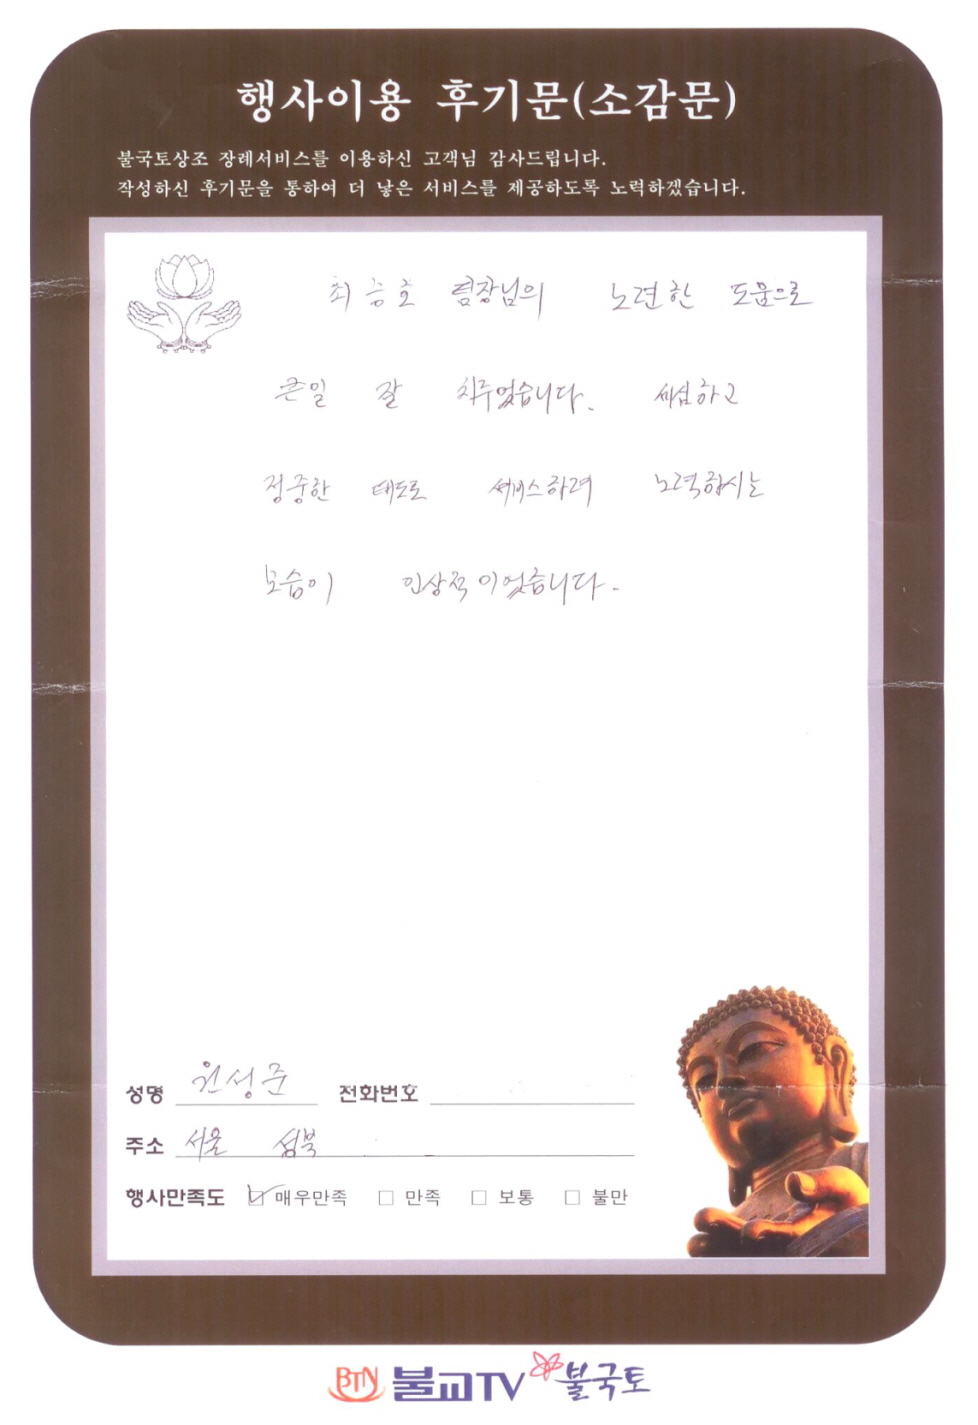 행사이용 후기문(소감문)
불국토상조 장례서비스를 이용하신 고객님 감사드립니다.
작성하신 후기문을 통하여 더 낳은 서비스를 제공하도록 노력하겠습니다.
최승호 팀장님의 노련한 도움으로
큰일 잘 치루었습니다. 세심하고
정중한 태도로 서비스하려 노력하시는
모습이 인상적이었습니다.
성명 원성준 전화번호
주소 서울 성북
행사만족도 ☑ 매우만족 □ 만족 □ 보통 □ 불만
BTN 불교TV 불국토